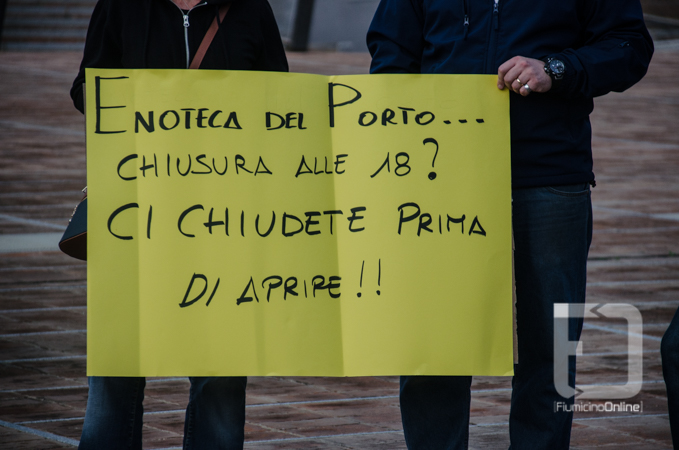 ENOTECA DEL PORTO...
CHIUSURA ALLE 18?
CI CHIUDETE PRIMA
DI APRIRE!!
[FiumicinoOnline]